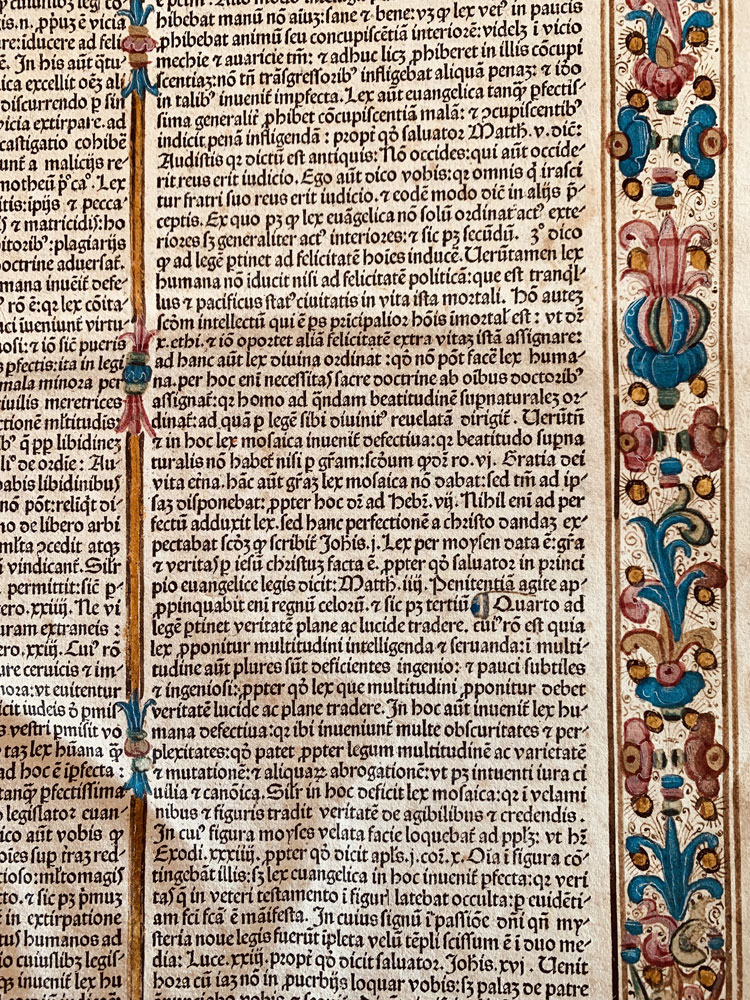 p cuiuslibꝫ leg co
gis.n, ꝓpuꝫ ē vicia
re:iducere ad feli
. In his aūt q̄tu-
ica excellit oēs ali
discurrendo p sin
vicia extirpare.ad
castigatio cohibē
unt̄ a malicijs re-
motheū pᵒ.caᵒ.Lex
itis:ipijs ⁊ pecca-
s ⁊ matricidis:ho
itoribꝰ:plagiarijs
octrine aduersat̄.
mana inuēit defe-
rō ē:qꝛ lex cōita
aci īueniunt virtu
uosi:⁊ iō sic̄ pueris
s pfectis:ita in legi
mala minora per
ciuilis meretrices
ctionem ml̄titudis
bꝰ q̄ ꝓp libidineꝫ
lꝰ de ordie : Au-
babis libidinibus
nō pōt:reliqt di-
no de libero arbi
ml̄ta ꝯcedit atqꝫ
i vindicant̄. Sil̓r
permittit:sic̄ p-
ero.xxiiij. Ne vi
uram extraneis :
ero.xxiij. Cuiꝰ rō
re ceruicis ⁊ im-
nora:vt euitentur
icit iudeis ꝙ p̄mis
s vestri p̄misit vo
taꝫ lex hūana q̄
ad hoc ē ip̄fecta :
tanq̄ pfectissima
ꝙ legislator euan-
cio aūt vobis ꝙ
oies suꝑ tr̄aꝫ red-
cioso:ml̄tomagis
cto. ⁊ sic pꝫ p̄muꝫ
in extirpatione
tꝰ humanos ad
o cuiuslibꝫ legis-
qꝫ inuenit̄ lex hu
hibebat manū nō aīuꝫ:sane ⁊ bene:vꝫ ꝙ lex vetꝰ in paucis
ꝓhibebat animū seu concupiscētiā interiorē:videlꝫ i vicio
mechie ⁊ auaricie tm̄: ⁊ adhuc licꝫ ꝓhiberet in illis cōcupi
scentiaꝫ:nō tn̄ trāsgressoribꝰ infligebat aliquā penaꝫ: ⁊ iđo
in talibꝰ inuenit̄ imꝑfecta. Lex aūt euangelica tanq̄ ꝑfectis-
sima generalit̄ ꝓhibet cōcupiscentiā malā: ⁊ ꝯcupiscentibꝰ
indicit penā infligendā : propt̄ qđ saluator Matth̄. v. dic̄:
Audistis qꝛ dictū est antiquis: Nō occides: qui aūt occide-
rit reus erit iudicio. Ego aūt dico vobis: qꝛ omnis q̄ irasci
tur fratri suo reus erit iudicio. ⁊ codē modo dic̄ in alijs p̄-
ceptis. Ex quo pꝫ ꝙ lex euāgelica nō solū ordinat actꝰ exte-
riores sꝫ generaliter actꝰ interiores: ⁊ sic pꝫ secūdū. 3ᵒ dico
ꝙ ad legē ꝑtinet ad felicitatē hoīes inducē. Uerūtamen lex
humana nō iducit nisi ad felicitatē politicā: que est tranql̄-
lus ⁊ pacificus statꝰ ciuitatis in vita ista mortali. Hō auteꝫ
scđm intellectū qui ē ps pricipalior hōis imortal̓ est : vt dꝛ
x.ethi.⁊ iō oportet aliā felicitatē extra vitaꝫ istā assignare:
ad hanc aūt lex diuina ordinat̄ : qđ nō pōt facē lex huma-
na. per hoc eni necessitas sacre doctrine ab oībus doctoribꝰ
assignat̄: qꝛ homo ad q̄ndam beatitudinē supnaturaleꝫ or-
dinat̄: ad quā ꝑ legē sibi diuinitꝰ reuelatā dirigit̄. Uerūtn̄
⁊ in hoc lex mosaica inuenit̄ defectiua: qꝛ beatitudo supna
turalis nō habet̄ nisi ꝑ gr̄am: scđm qđꝛ ro.vj. Gratia dei
vita et̄na. hāc aūt gr̄aꝫ lex mosaica nō dabat: sed tm̄ ad ip-
saꝫ disponebat: ꝓpter hoc dꝛ ad Hebꝛ̄.vij. Nihil eni ad per
fectū adduxit lex. sed hanc perfectionē a christo dandaꝫ ex-
pectabat scđꝫ ꝙ scribit̄ Johīs.j. Lex per moysen data ē: gr̄a
⁊ veritas ꝑ iesū christuꝫ facta ē. ꝓpter qđ saluator in princi
pio euangelice legis dicit: Matth̄. iiij. Penitentiā agite ap-
ꝓpinquabit eni regnū celorū. ⁊ sic pꝫ tertiū Quarto ad
legē ꝑtinet veritatē plane ac lucide tradere. cuiꝰ rō est quia
lex ꝓponitur multitudini intelligenda ⁊ seruanda: ī multi-
tudine aūt plures sūt deficientes ingenio: ⁊ pauci subtiles
⁊ ingeniosi: ꝓpter qđ lex que multitudini ꝓponitur debet
veritatē lucide ac plane tradere. In hoc aūt inuenit̄ lex hu-
mana defectiua: qꝛ ibi inueniunt̄ multe obscuritates ⁊ per-
plexitates: qđ patet ꝓpter legum multitudinē ac varietatē
⁊ mutationē: ⁊ aliquaꝝ abrogationē: vt pꝫ intuenti iura ci
uilia ⁊ canōica. Sil̓r in hoc deficit lex mosaica: qꝛ ī velami
nibus ⁊ figuris tradit veritatē de agibilibus ⁊ credendis .
In cuiꝰ figura moyses velata facie loquebat̄ ad ppl̄ꝫ: vt hꝛ̄
Exodi. xxxiiij. ꝓpter qđ dicit apl̄s.j.coꝝ.x. Oīa ī figura cō-
tingebāt illis: sꝫ lex euangelica in hoc inuenit̄ ꝑfecta: qꝛ veri
tas q̄ in veteri testamento ī figur latebat occulta: ꝑ euidēti-
am fci fcā ē māifesta. In cuius signū ī passiōe dn̄i qn̄ my-
steria noue legis fuerūt īpleta velū tēpli scissum ē ī duo me-
dia: Luce.xxiij. propt̄ qđ dicit saluator. Johīs. xvj . Uenit
hora cū iaꝫ nō in ꝓuerbijs loquar vobis: sꝫ palaꝫ de patre